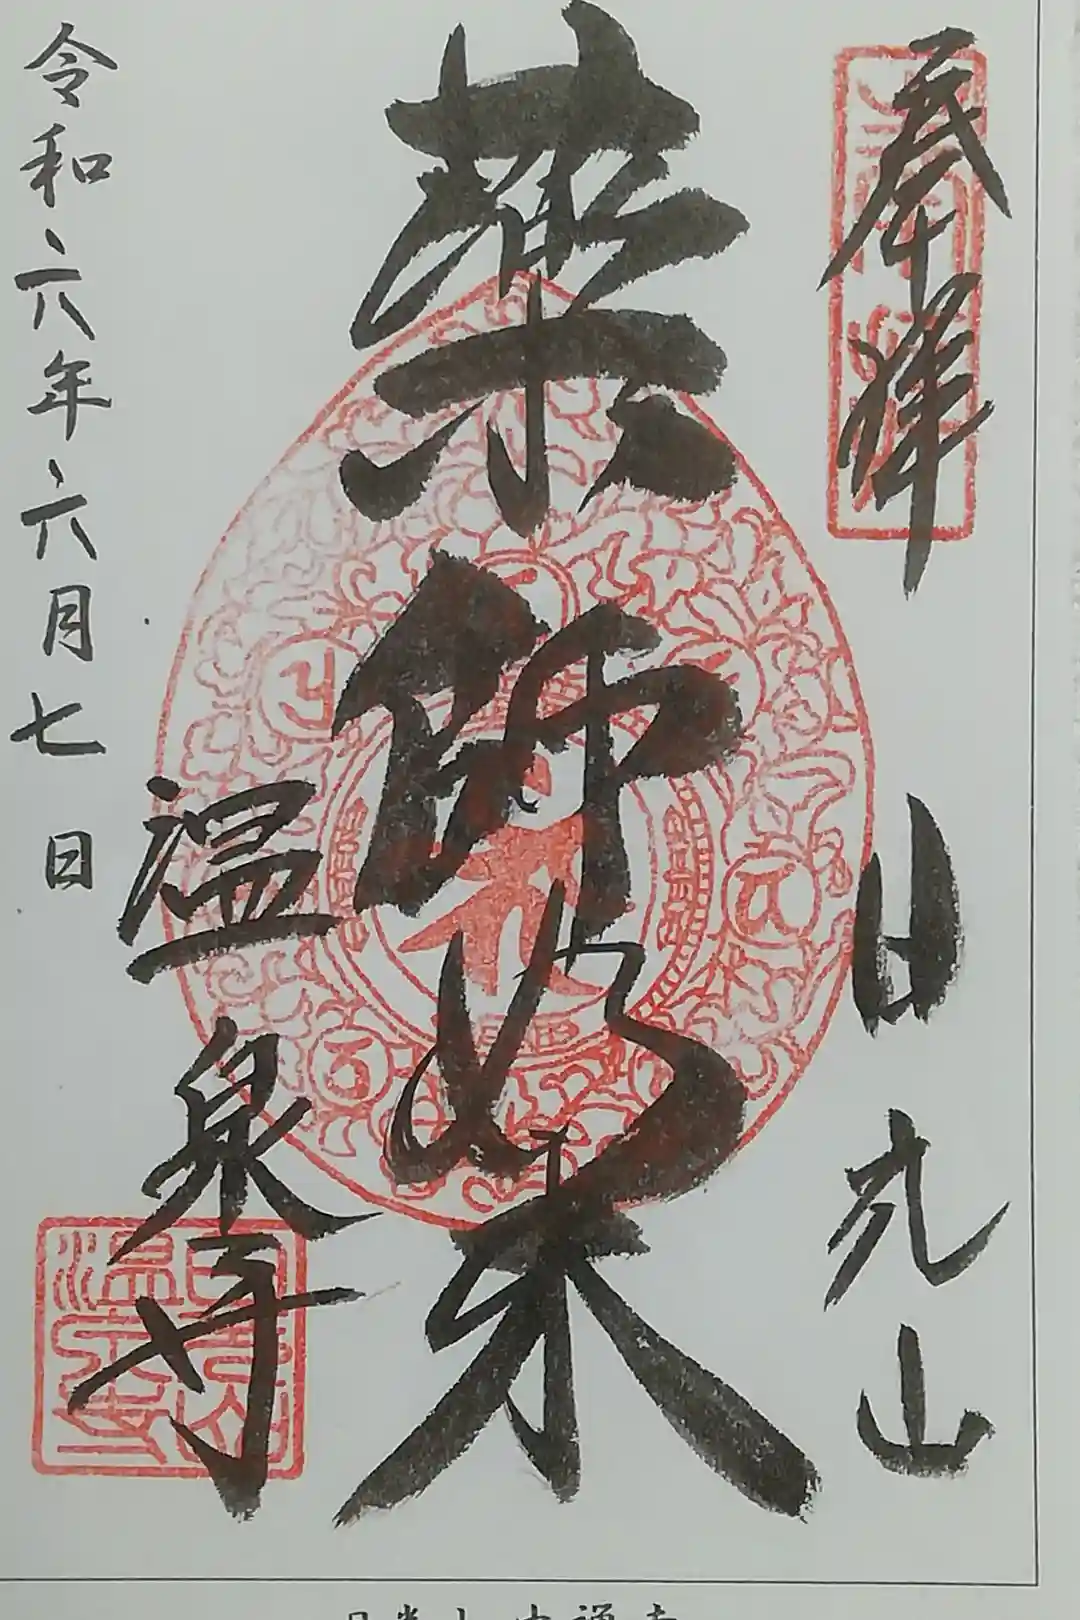 奉拝
日光山
薬師如来
温泉寺
令和六年六月七日